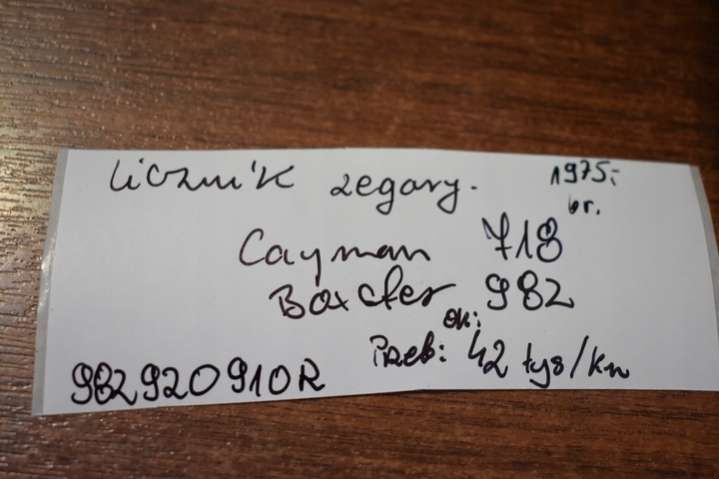 Licznik zegary. 1975,-
br.
Cayman 718
Boxster 982
ok:
Przeb: 42 tys/km
982920910R